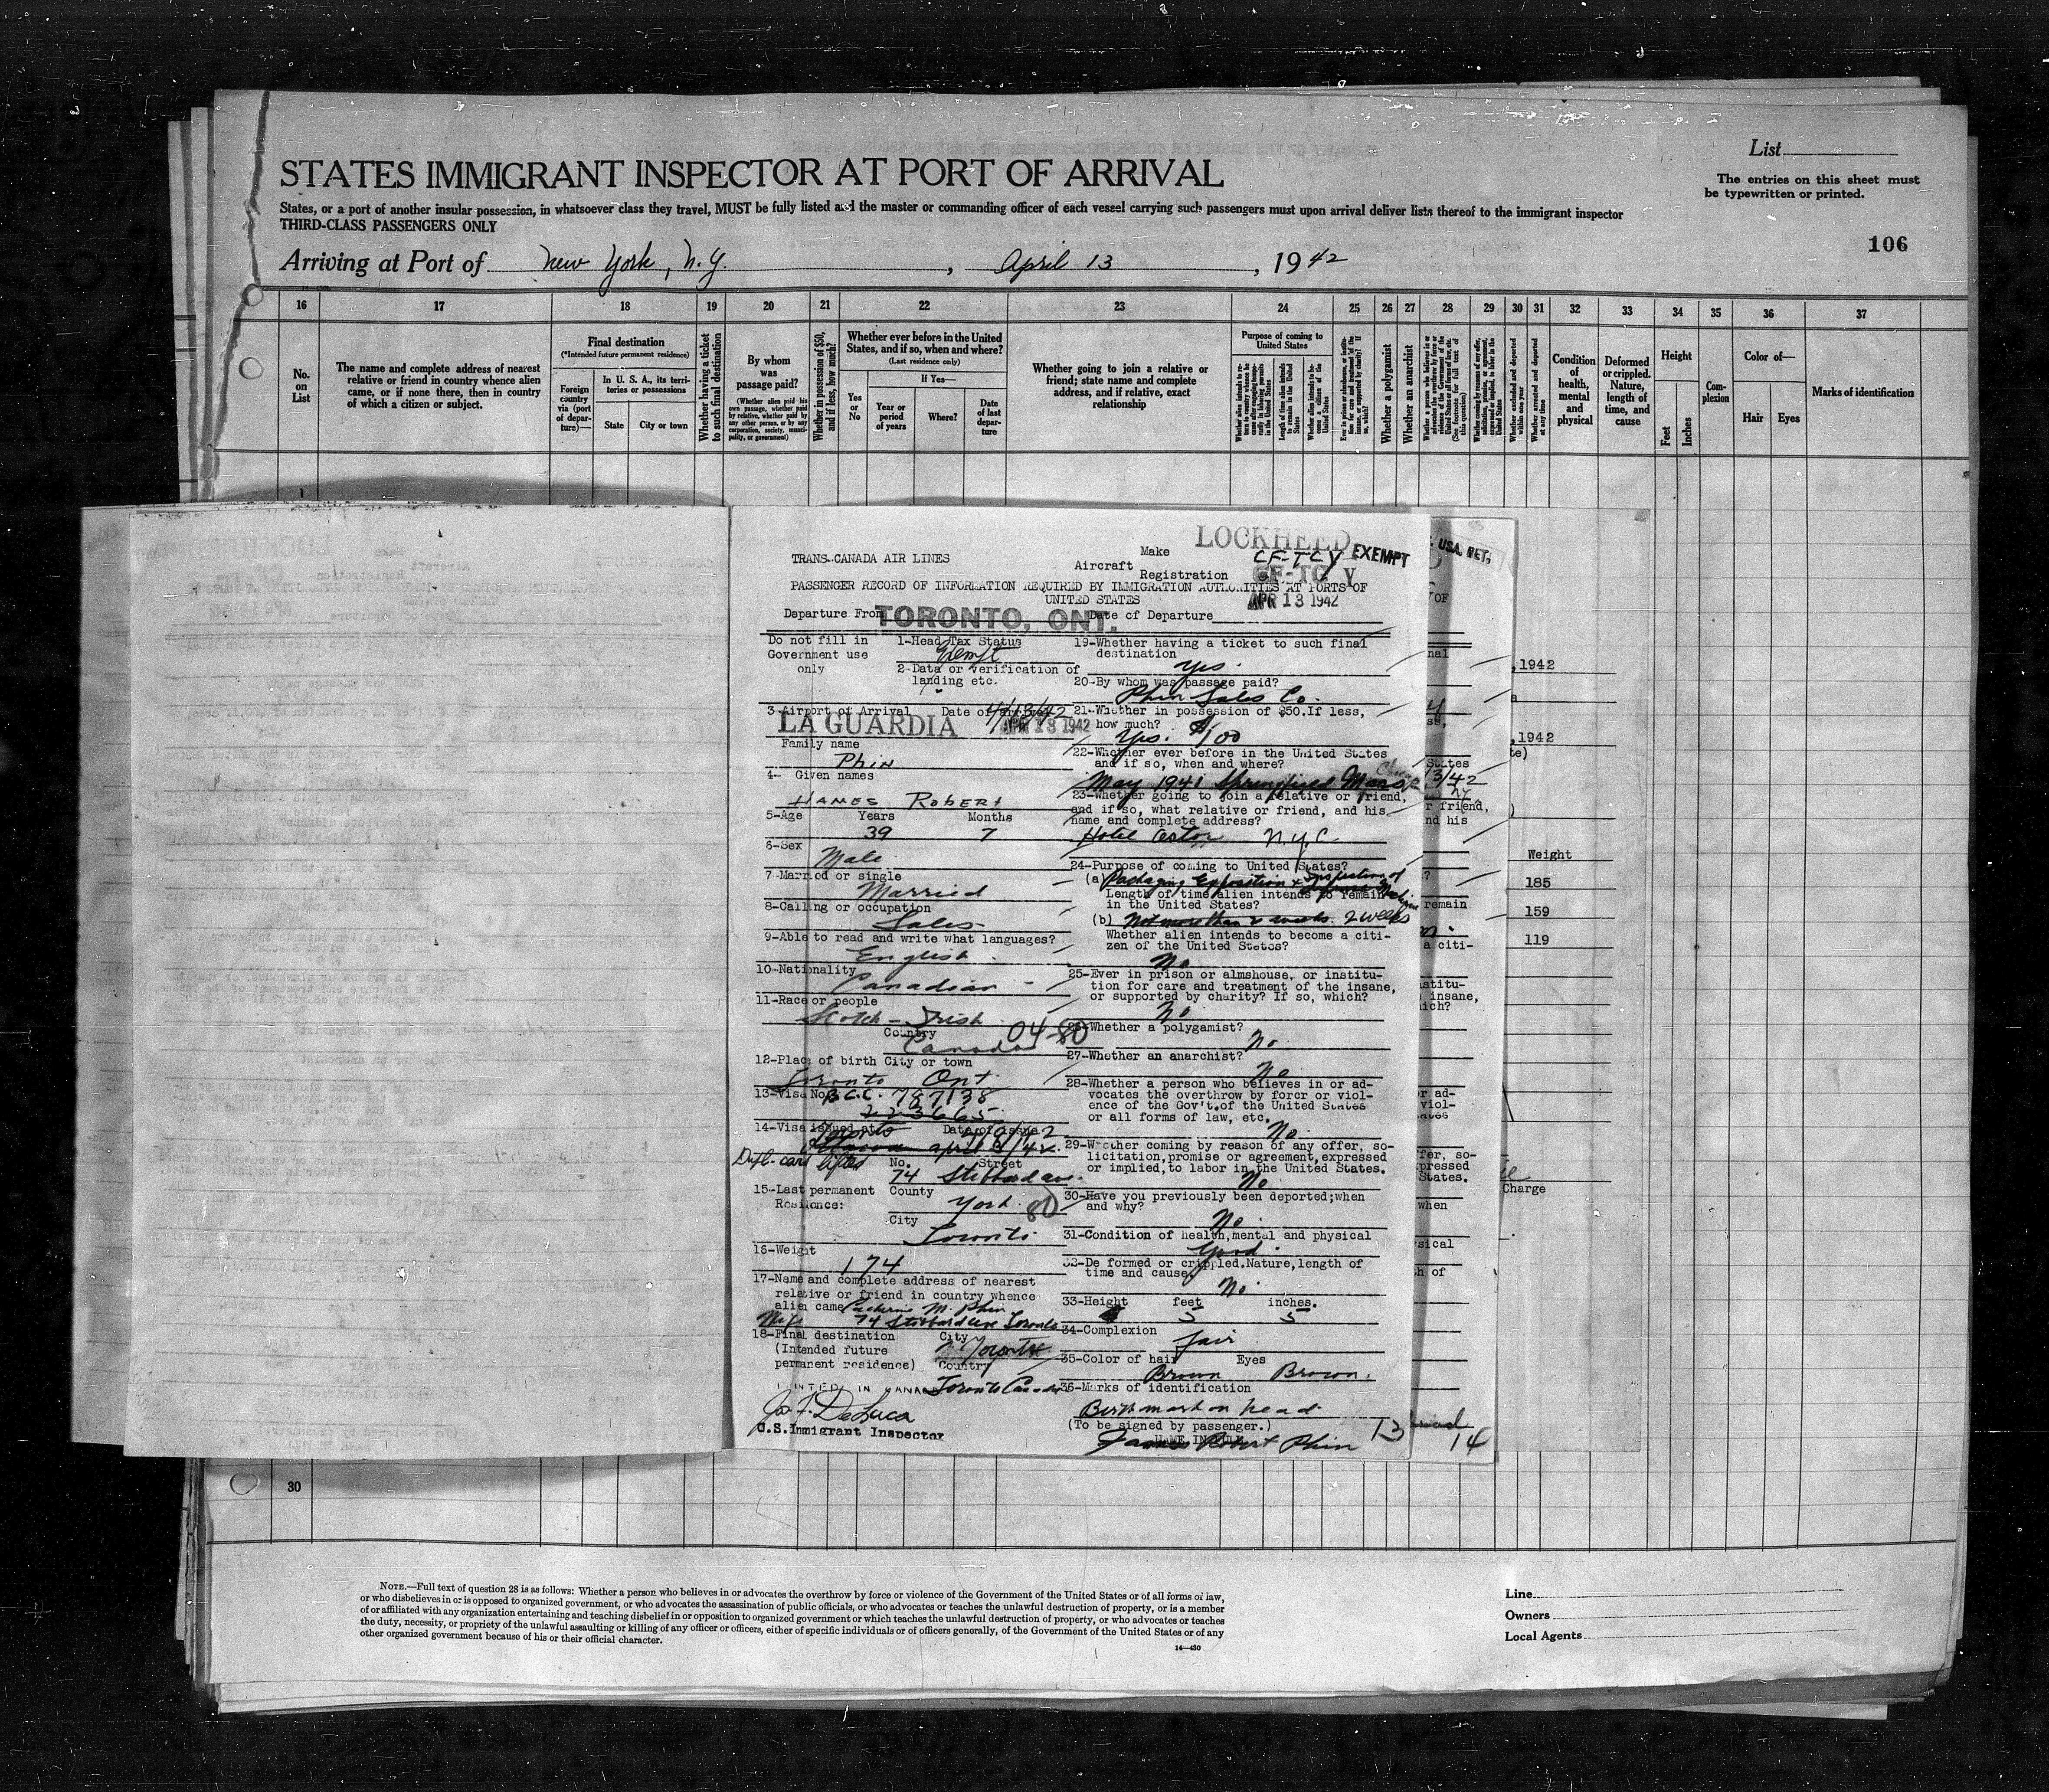 List
STATES IMMIGRANT INSPECTOR AT PORT OF ARRIVAL
The entries on this sheet must
be typewritten or printed.
States, or a port of another insular possession, in whatsoever class they travel, MUST be fully listed and the master or commanding officer of each vessel carrying such passengers must upon arrival deliver lists thereof to the immigrant inspector
THIRD-CLASS PASSENGERS ONLY
106
Arriving at Port of New York, N.Y., April 13, 1942
16 17 18 19 20 21 22 23 24 25 26 27 28 29 30 31 32 33 34 35 36 37
No.
on
List
The name and complete address of nearest
relative or friend in country whence alien
came, or if none there, then in country
of which a citizen or subject.
Final destination
(*Intended future permanent residence)
Foreign
country
via (port
of depar-
ture)—
In U. S. A., its terri-
tories or possessions
State
City or town
Whether having a ticket
to such final destination
By whom
was
passage paid?
(Whether alien paid his
own passage, whether paid
by relative, whether paid by
any other person, or by any
corporation, society, munici-
pality, or government)
Whether in possession of $50,
and if less, how much?
Whether ever before in the United
States, and if so, when and where?
(Last residence only)
If Yes—
Yes
or
No
Year or
period
of years
Where?
Date
of last
depar-
ture
Whether going to join a relative or
friend; state name and complete
address, and if relative, exact
relationship
Purpose of coming to
United States
Whether a polygamist
Whether an anarchist
Condition
of
health,
mental
and
physical
Deformed
or crippled.
Nature,
length of
time, and
cause
Height
Feet
Inches
Com-
plexion
Color of—
Hair
Eyes
Marks of identification
1
TRANS-CANADA AIR LINES
Aircraft
Make LOCKHEED
Registration CF-TCY
EXEMPT
USA. RET.
PASSENGER RECORD OF INFORMATION REQUIRED BY IMMIGRATION AUTHORITIES AT PORTS OF
UNITED STATES
APR 13 1942
Departure From TORONTO, ONT.
Date of Departure
Do not fill in
Government use
only
1-Head Tax Status
Exempt
2-Data or verification of
landing etc.
3-Airport of Arrival Date of
LA GUARDIA 4/13/42
APR 13 1942
Family name
Phin
4- Given names
JAMES ROBERT
5-Age Years Months
39 7
6-Sex
Male
7-Married or single
Married
8-Calling or occupation
Sales
9-Able to read and write what languages?
English
10-Nationality
Canadian
11-Race or people
Scotch-Irish
Country
Canada 04-80
12-Place of birth City or town
Toronto Ont.
13-Visa No. B.C.C. 787138
223665
14-Visa issued at Date of issue
Toronto
April
Dupl. card lifted
No. Street
74 Stibbard ave.
15-Last permanent
Residence:
County
York 80
City
Toronto
16-Weight
174
17-Name and complete address of nearest
relative or friend in country whence
alien came M. Phin
Wife 74 Stibbard ave Toronto
18-Final destination
(Intended future
permanent residence)
City
Toronto
Country
Toronto Canada
PRINTED IN CANADA
DeLuca
U.S.Immigrant Inspector
19-Whether having a ticket to such final
destination
Yes.
20-By whom was passage paid?
Phin Sales Co.
21-Whether in possession of $50.If less,
how much?
Yes. $100
22-Whether ever before in the United States
and if so, when and where?
May 1941 Springfield Mass
23-Whether going to join a relative or friend,
and if so, what relative or friend, and his
name and complete address?
Hotel Astor N.Y.C.
24-Purpose of coming to United States?
(a) Packaging Exposition & Inspection of
Length of time alien intends to remain
in the United States?
(b) Not more than 2 weeks. 2 weeks
Whether alien intends to become a citi-
zen of the United States?
No
25-Ever in prison or almshouse, or institu-
tion for care and treatment of the insane,
or supported by charity? If so, which?
No
26-Whether a polygamist?
No.
27-Whether an anarchist?
No
28-Whether a person who believes in or ad-
vocates the overthrow by forcr or viol-
ence of the Gov't.of the United States
or all forms of law, etc.
No.
29-Whether coming by reason of any offer, so-
licitation,promise or agreement,expressed
or implied,to labor in the United States.
No
30-Have you previously been deported;when
and why?
No.
31-Condition of health,mental and physical
Good.
32-De formed or crippled.Nature,length of
time and cause.
No
33-Height feet inches.
5 5
34-Complexion
fair
35-Color of hair Eyes
Brown Brown.
36-Marks of identification
Birthmark on head.
(To be signed by passenger.)
NAME IN FULL
James Robert Phin
13
14
,1942
,1942
Weight
185
159
119
Charge
30
NOTE.—Full text of question 28 is as follows: Whether a person who believes in or advocates the overthrow by force or violence of the Government of the United States or of all forms of law,
or who disbelieves in or is opposed to organized government, or who advocates the assassination of public officials, or who advocates or teaches the unlawful destruction of property, or is a member
of or affiliated with any organization entertaining and teaching disbelief in or opposition to organized government or which teaches the unlawful destruction of property, or who advocates or teaches
the duty, necessity, or propriety of the unlawful assaulting or killing of any officer or officers, either of specific individuals or of officers generally, of the Government of the United States or of any
other organized government because of his or their official character.
14—430
Line
Owners
Local Agents